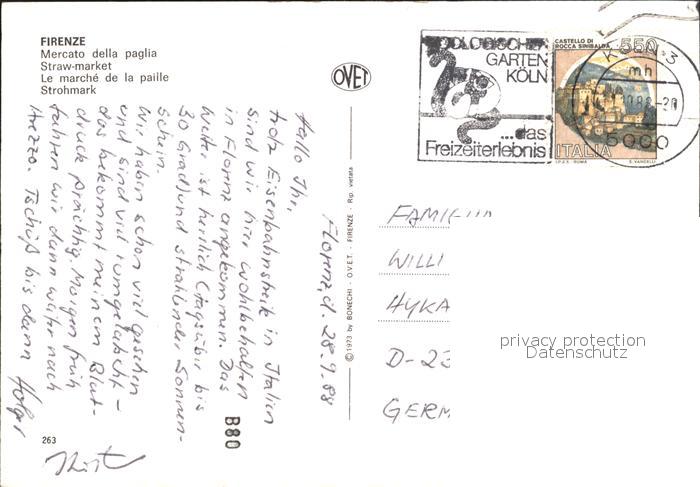 FIRENZE
Mercato della paglia
Straw-market
Le marché de la paille
Strohmark
OVET
ZOOLOGISCHER
GARTEN
KÖLN
...das
Freizeiterlebnis
CASTELLO DI
ROCCA SINIBALDA
550
mh
5000
ITALIA
I.P.Z.S. ROMA
E. VANGELLI
Florenz, d. 28.9.88
Hallo Ihr,
trotz Eisenbahnstreik in Italien
sind wir hier wohlbehalten
in Florenz angekommen. Das
Wetter ist herrlich (tagsüber bis
30 Grad) und strahlender Sonnen-
schein.
Wir haben schon viel gesehen
und sind viel rumgelatscht -
das bekommt meinem Blut-
druck prächtig. Morgen früh
fahren wir dann weiter nach
Arezzo. Tschüß bis dann Holger
B80
© 1973 by BONECHI - O.V.E.T. - FIRENZE - Rip. vietata
FAMILI
WILLI
HYKA
D-23
GERM
privacy protection
Datenschutz
263